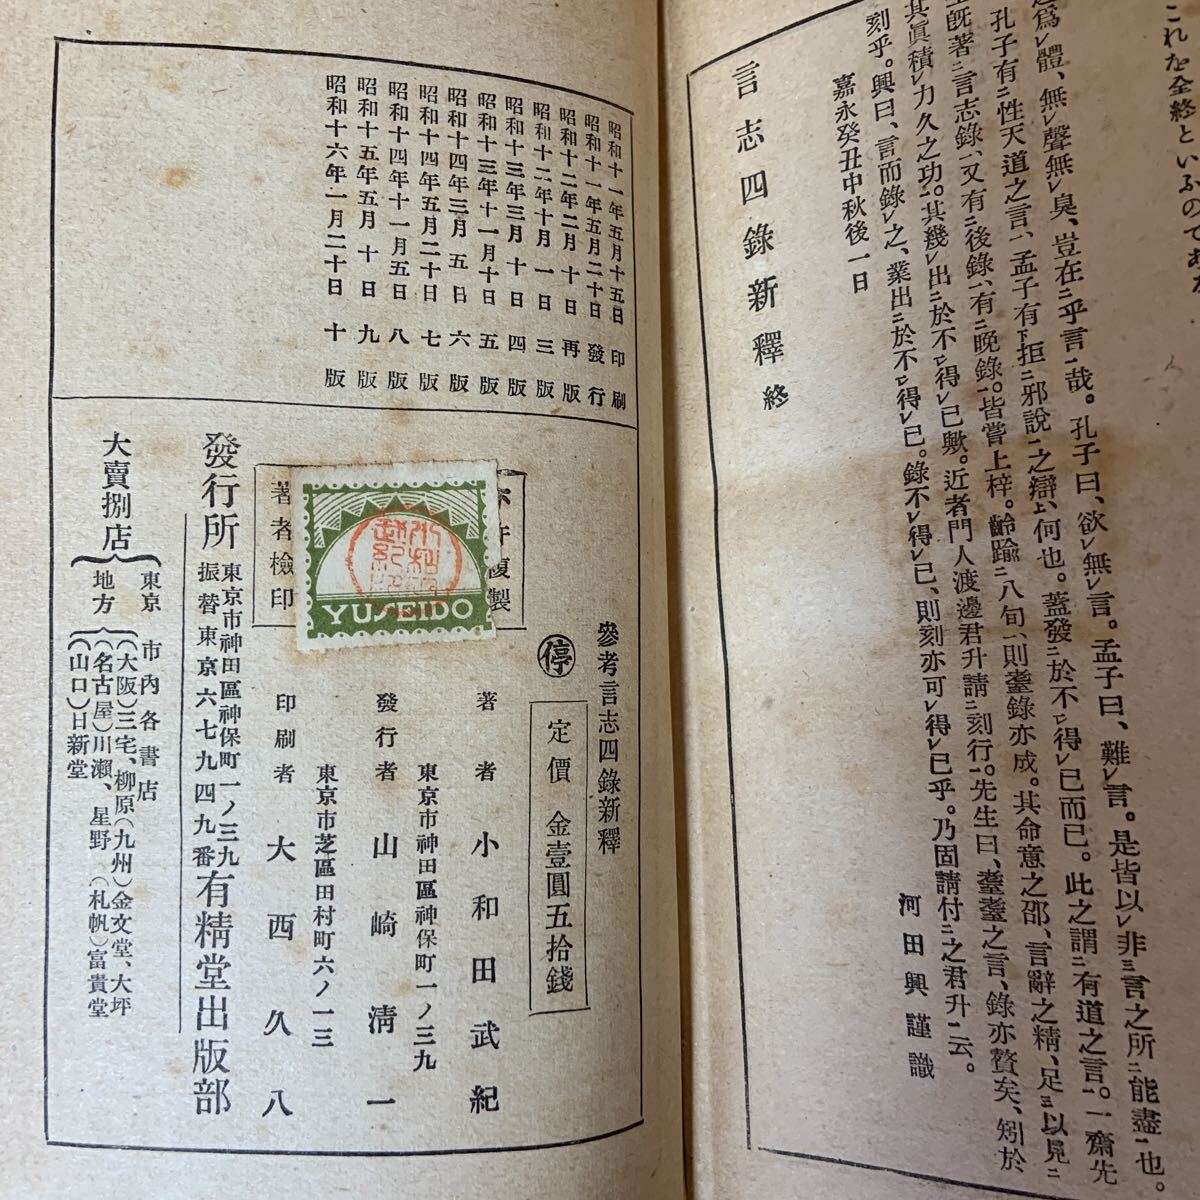 これを全終といふのである
爲レ體、無レ聲無レ臭、豈在二乎言一哉。孔子曰、欲レ無レ言。孟子曰、難レ言。是皆以レ非三言之所二能盡一也。
孔子有二性天道之言一、孟子有下拒二邪說一之辯上、何也。蓋發二於不レ得レ已而已。此之謂二有道之言一。一齋先
生旣著二言志錄一、又有二後錄一、有二晚錄一。皆嘗上梓。齡踰二八旬一、則耋錄亦成。其命意之邵、言辭之精、足三以見二
其眞積レ力久之功一。其幾レ出二於不レ得レ已歟。近者門人渡邊君升請二刻行一。先生曰、耋耋之言、錄亦贅矣、矧於
刻乎。興曰、言而錄レ之、業出二於不レ得レ已。錄不レ得レ已、則刻亦可レ得レ已乎。乃固請付二之君升一云。
嘉永癸丑中秋後一日
河田興謹識
言志四錄新釋 終
昭和十一年五月十五日 印刷
昭和十一年五月二十日 發行
昭和十二年二月十日 再版
昭和十二年十月一日 三版
昭和十三年三月十日 四版
昭和十三年十一月十日 五版
昭和十四年三月五日 六版
昭和十四年五月二十日 七版
昭和十四年十一月五日 八版
昭和十五年五月十日 九版
昭和十六年一月二十日 十版
參考言志四錄新釋
停
定價 金壹圓五拾錢
許複製
著者檢印
YUSEIDO
著者 小和田武紀
東京市神田區神保町一ノ三九
發行者 山崎淸一
東京市芝區田村町六ノ一三
印刷者 大西久八
發行所
東京市神田區神保町一ノ三九
振替東京六七九四九番
有精堂出版部
大賣捌店
東京 市內各書店
地方
(大阪)三宅、柳原(九州)金文堂、大坪
(名古屋)川瀨、星野、(札幌)富貴堂
(山口)日新堂